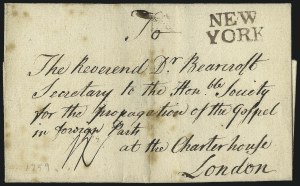 To
NEW
YORK
The Reverend Dr Bearcroft
Secretary to the Honble Society
for the Propagation of the Gospel
in foreign Parts
at the Charterhouse
London